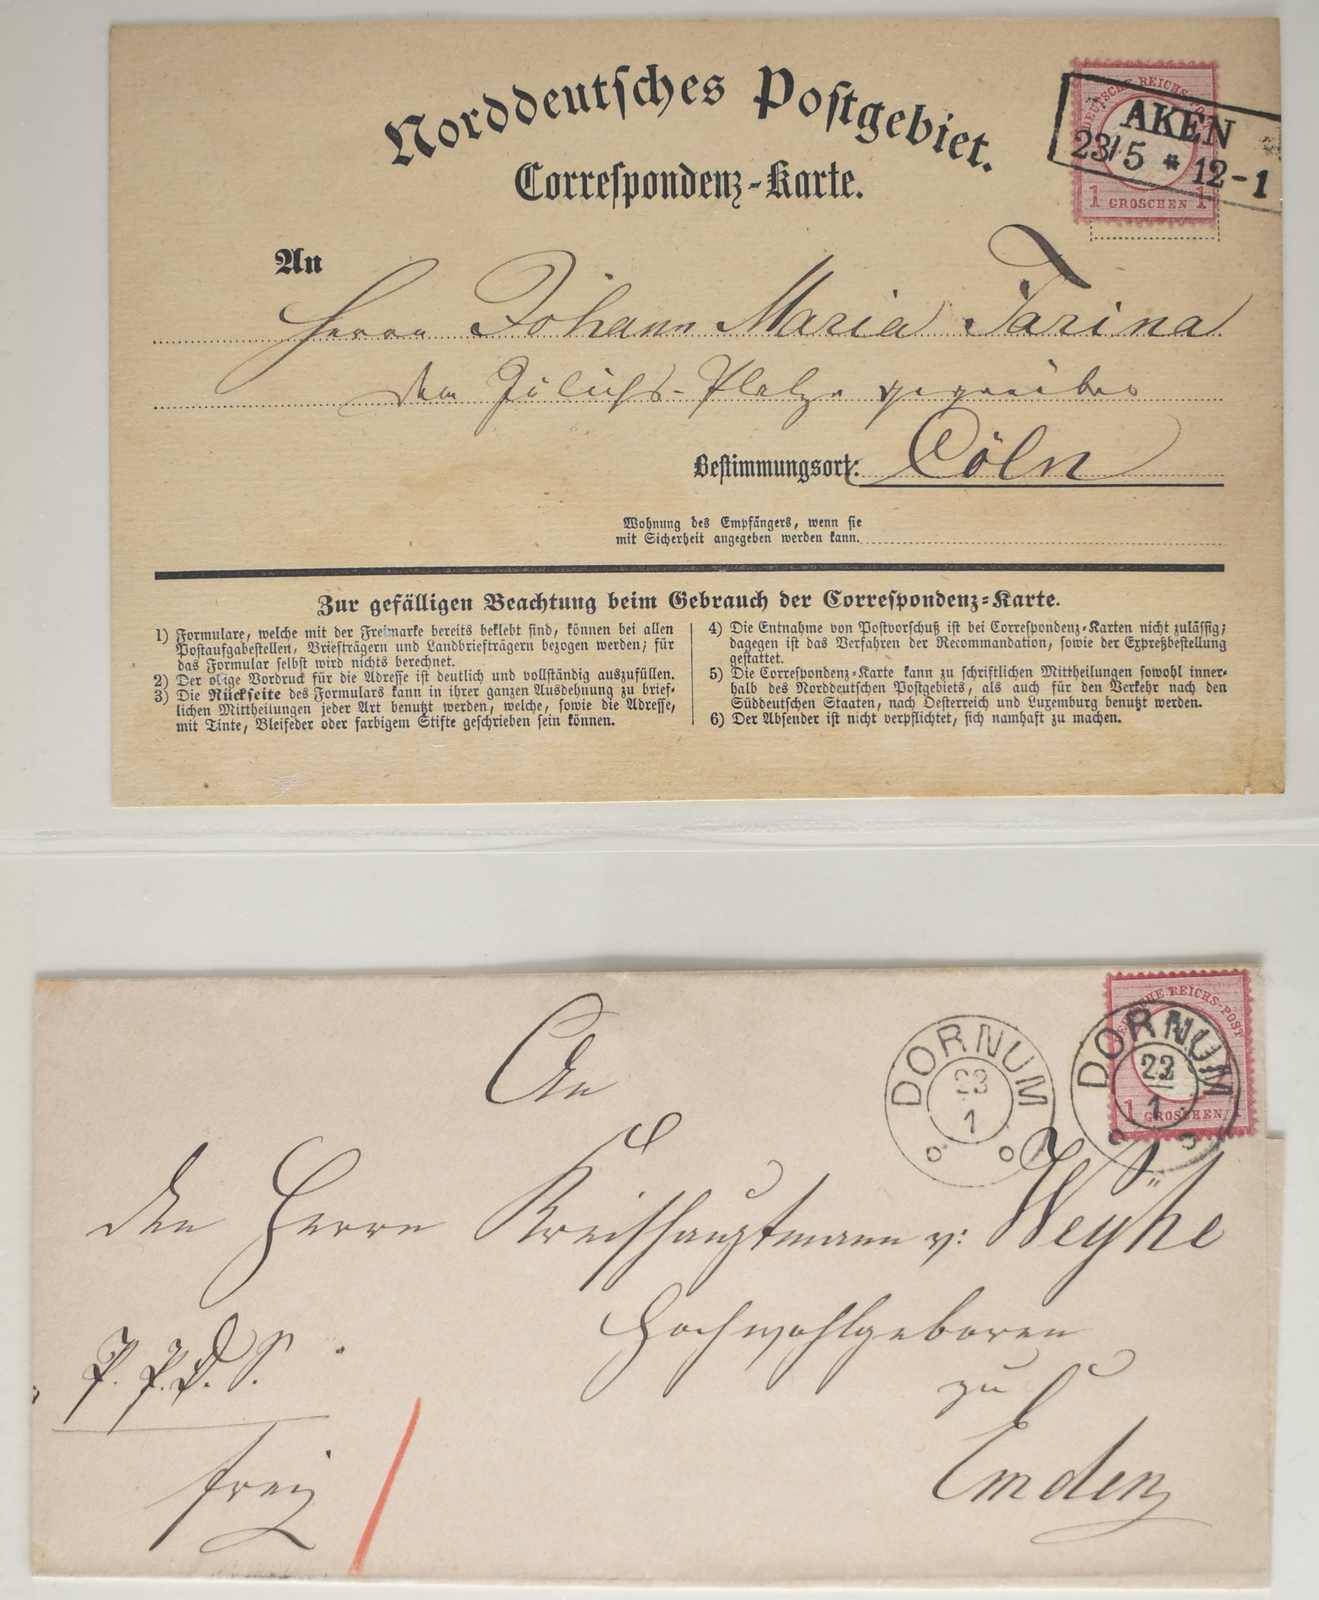 Norddeutsches Postgebiet.
Correspondenz-Karte.
DEUTSCHE REICHS-POST
1 GROSCHEN 1
AKEN
23/5 * 12-1
An
Herrn Johann Maria Farina
dem Jülichs-Platze gegenüber
Bestimmungsort: Cöln
Wohnung des Empfängers, wenn sie
mit Sicherheit angegeben werden kann.
Zur gefälligen Beachtung beim Gebrauch der Correspondenz-Karte.
1) Formulare, welche mit der Freimarke bereits beklebt sind, können bei allen
Postaufgabestellen, Briefträgern und Landbriefträgern bezogen werden; für
das Formular selbst wird nichts berechnet.
2) Der obige Vordruck für die Adresse ist deutlich und vollständig auszufüllen.
3) Die Rückseite des Formulars kann in ihrer ganzen Ausdehnung zu brief-
lichen Mittheilungen jeder Art benutzt werden, welche, sowie die Adresse,
mit Tinte, Bleifeder oder farbigem Stifte geschrieben sein können.
4) Die Entnahme von Postvorschuß ist bei Correspondenz-Karten nicht zulässig;
dagegen ist das Verfahren der Recommandation, sowie der Expreßbestellung
gestattet.
5) Die Correspondenz-Karte kann zu schriftlichen Mittheilungen sowohl inner-
halb des Norddeutschen Postgebiets, als auch für den Verkehr nach den
Süddeutschen Staaten, nach Oesterreich und Luxemburg benutzt werden.
6) Der Absender ist nicht verpflichtet, sich namhaft zu machen.
DEUTSCHE REICHS-POST
1 GROSCHEN
DORNUM
23
1
DORNUM
23
1
An
den Herrn Kreishauptmann v: Weyhe
Hochwohlgeboren
zu
Emden
P. P. D. S.
frei